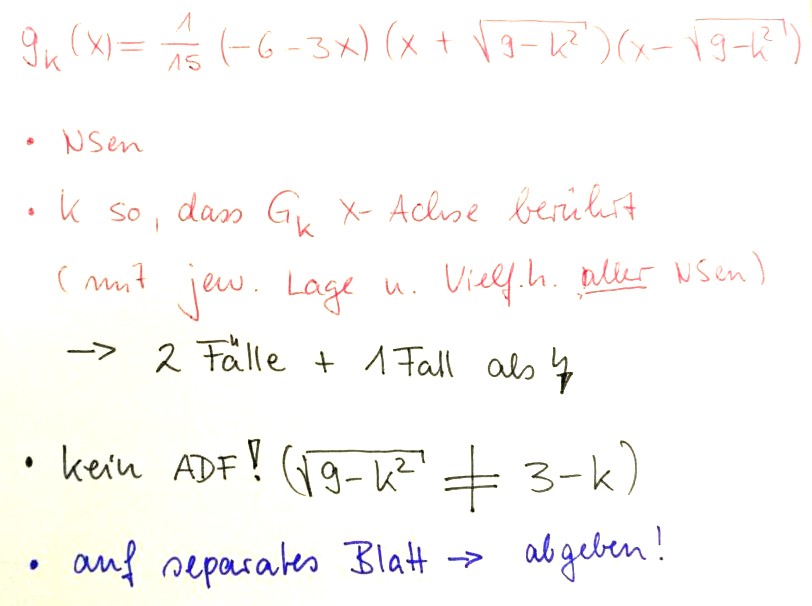 g_k (x) = 1/15 (-6 - 3x) (x + √(9-k²)) (x - √(9-k²))
• NSen
• k so, dass G_k x-Achse berührt
(mit jew. Lage u. Vielf.h. aller NSen)
→ 2 Fälle + 1 Fall als ↯
• kein ADF! (√(9-k²) ≠ 3-k)
• auf separates Blatt → abgeben!